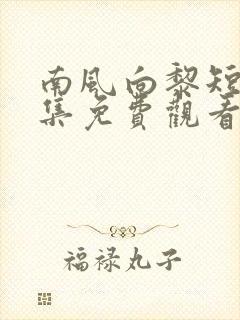 南風向黎短
集免費觀看
福禄丸子